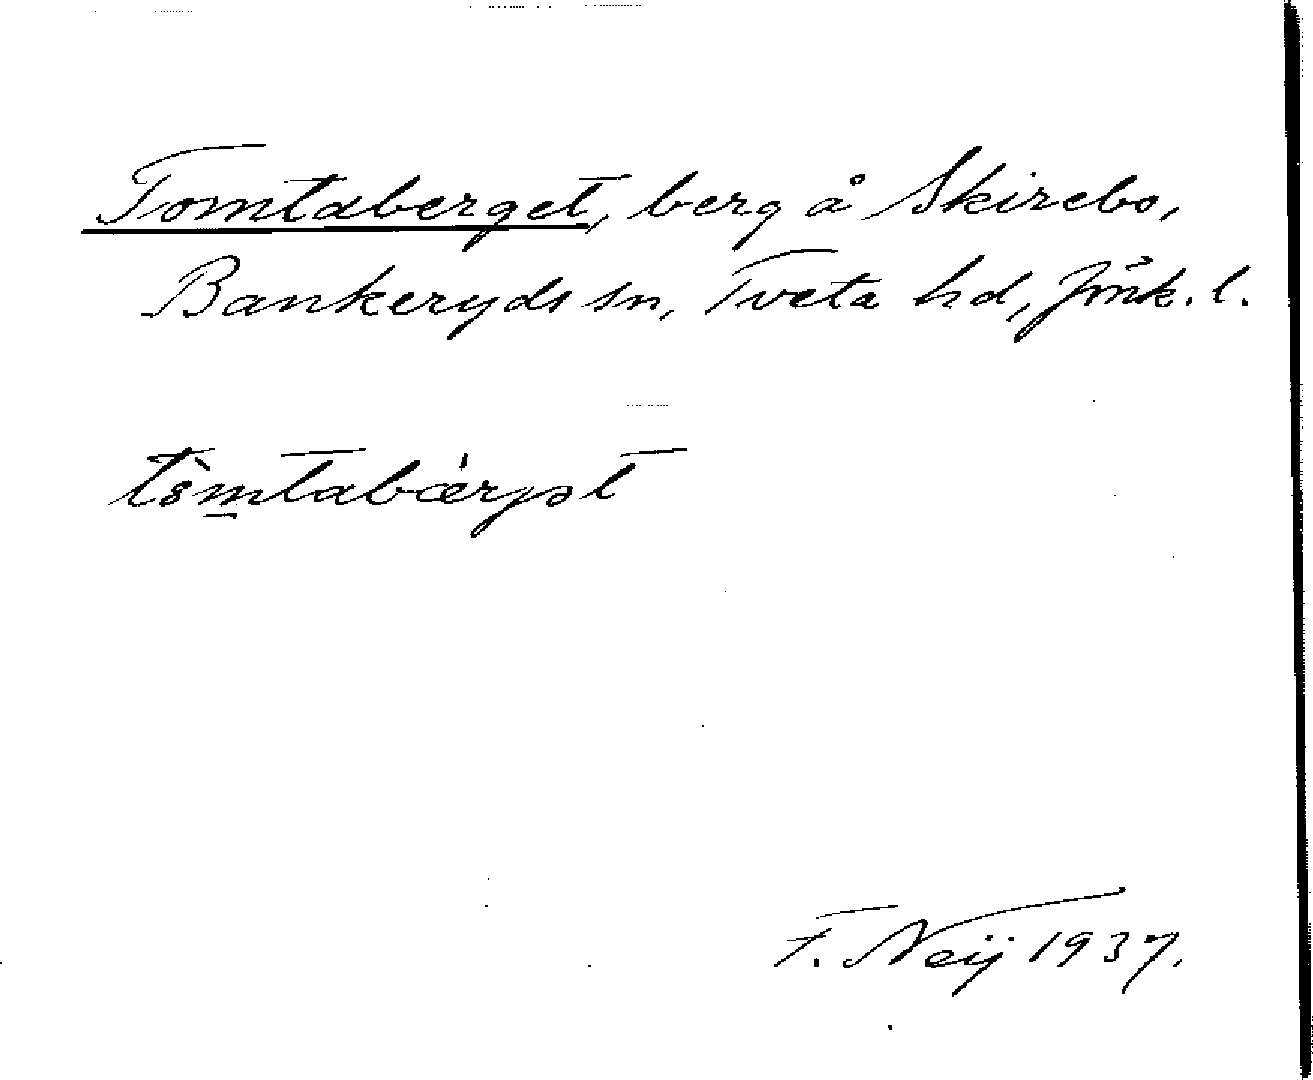 Tomtaberget, berg å Skirebo,
Bankeryds sn, Tveta hd, Jönk. l.
tòmtabærjət
F. Neij 1937.